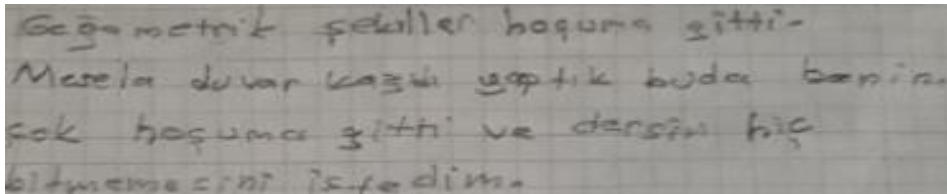 Geğometrik şekiller hoşuma gitti.
Mesela duvar yaptık buda benim
çok hoşuma gitti ve dersin hiç
bitmemesini istedim.